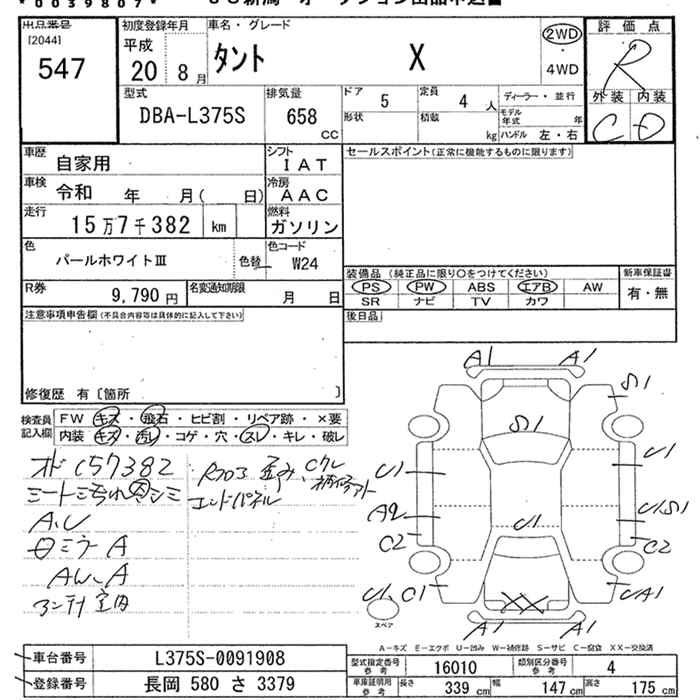 *0039807*
出品番号
[2044]
547
初度登録年月
平成
20 8月
車名・グレード
タント X
2WD
・
4WD
評価点
R
外装 内装
C D
型式
DBA-L375S
排気量
658
CC
ドア
5
定員
4 人
ディーラー・並行
形状
積載
kg
モデル年式 年
ハンドル 左・右
車歴
自家用
シフト
IAT
セールスポイント(正常に機能するものに限ります)
車検
令和 年 月( 日)
冷房
AAC
走行
15万7千382 km
燃料
ガソリン
色
パールホワイトⅢ
色替
色コード
W24
装備品(純正品に限り○をつけてください)
新車保証書
PS PW ABS エアB AW
有・無
SR ナビ TV カワ
R券
9,790円
名変通知期限
月 日
注意事項申告欄(不具合内容等は具体的に記入して下さい)
後日品
修復歴 有〔箇所 〕
検査員
記入欄
FW キズ・飛石・ヒビ割・リペア跡・×要
内装 キズ・汚レ・コゲ・穴・スレ・キレ・破レ
157382
A、U
ミラーA
AW、A
エンドパネル
A1 A1
S1
S1
U1 U1
A2 U1 U1S1
C2 C2
U1、C1 UA1
XX
スペア
A1 A1
A-キズ E-エクボ U-凹み W-補修跡 S-サビ C-腐食 XX-交換済
車台番号 L375S-0091908
型式指定番号
参考
16010
類別区分番号
参考
4
登録番号 長岡 580 さ 3379
車庫証明用
参考
長さ 339 cm 幅 147 cm 高さ 175 cm